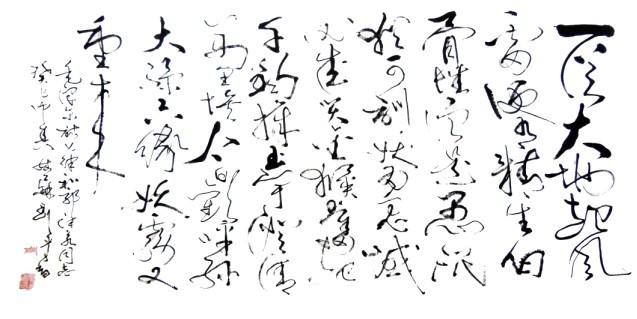 一从大地起风
雷便有精生白
骨堆僧是愚氓
犹可训妖为鬼蜮
必成灾金猴奋起
千钧棒玉宇澄清
万里埃今日欢呼孙
大圣只缘妖雾又
重来
毛泽东诗七律和郭沫若同志
癸巳仲夏姑苏